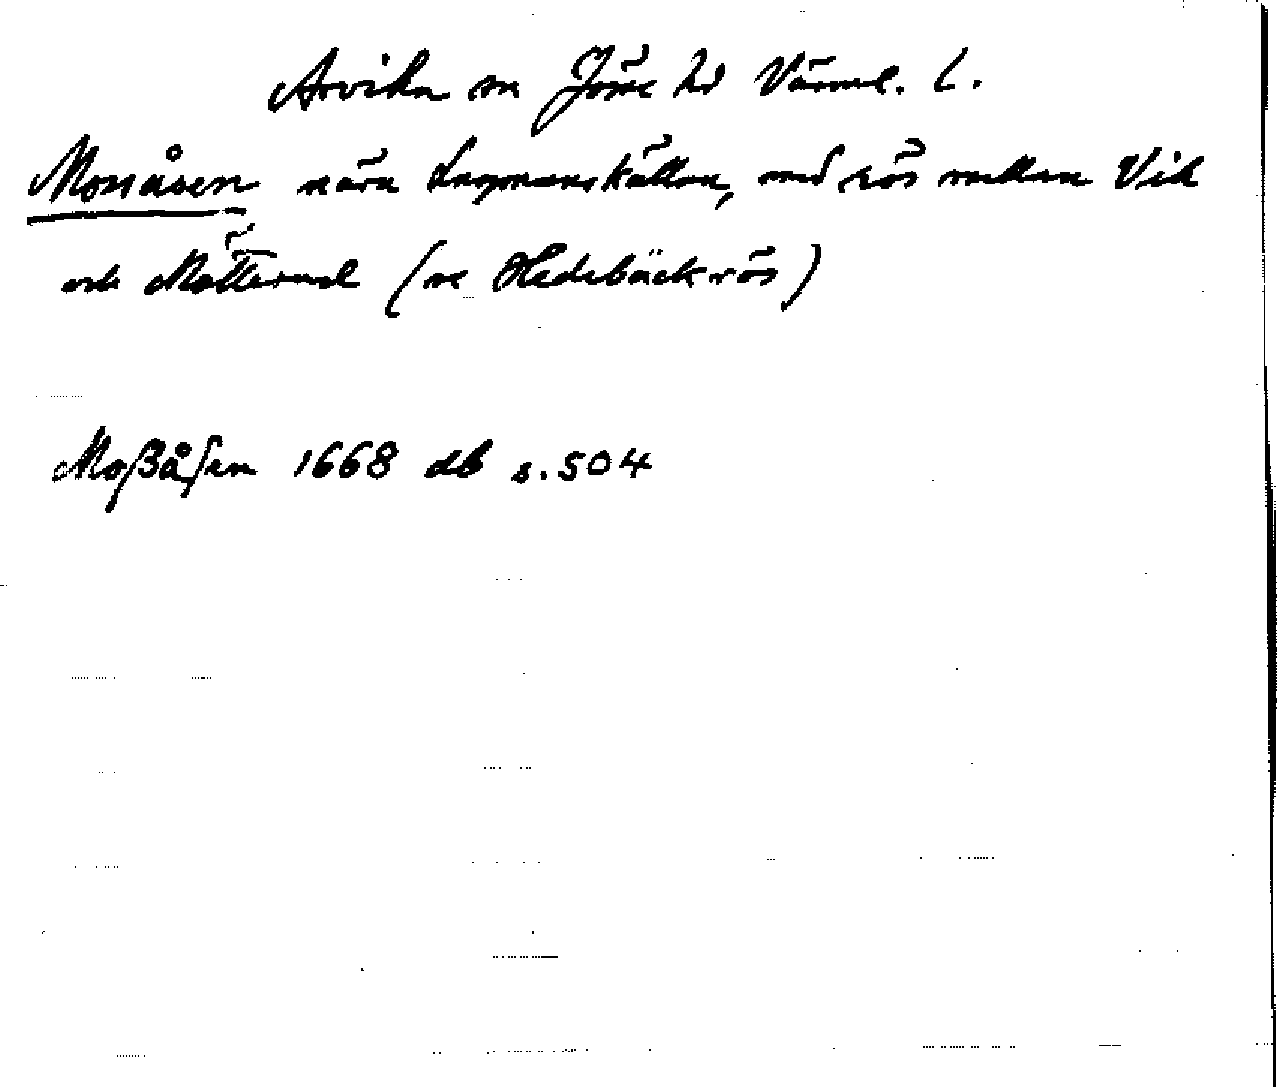 Arvika sn Jösse hd Värml. l.
Mossåsen nära Lagmanskällan, med rös mellan Vik
och Mötterud (se Hedebäckrös)
Moßåsen 1668 db s. 504